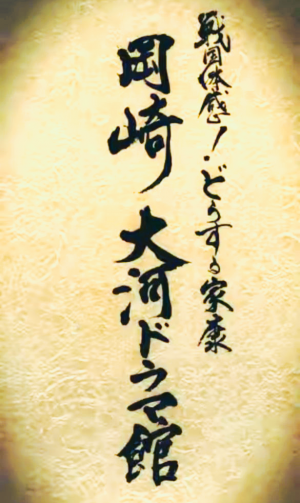 戦国体感!どうする家康
岡崎 大河ドラマ館